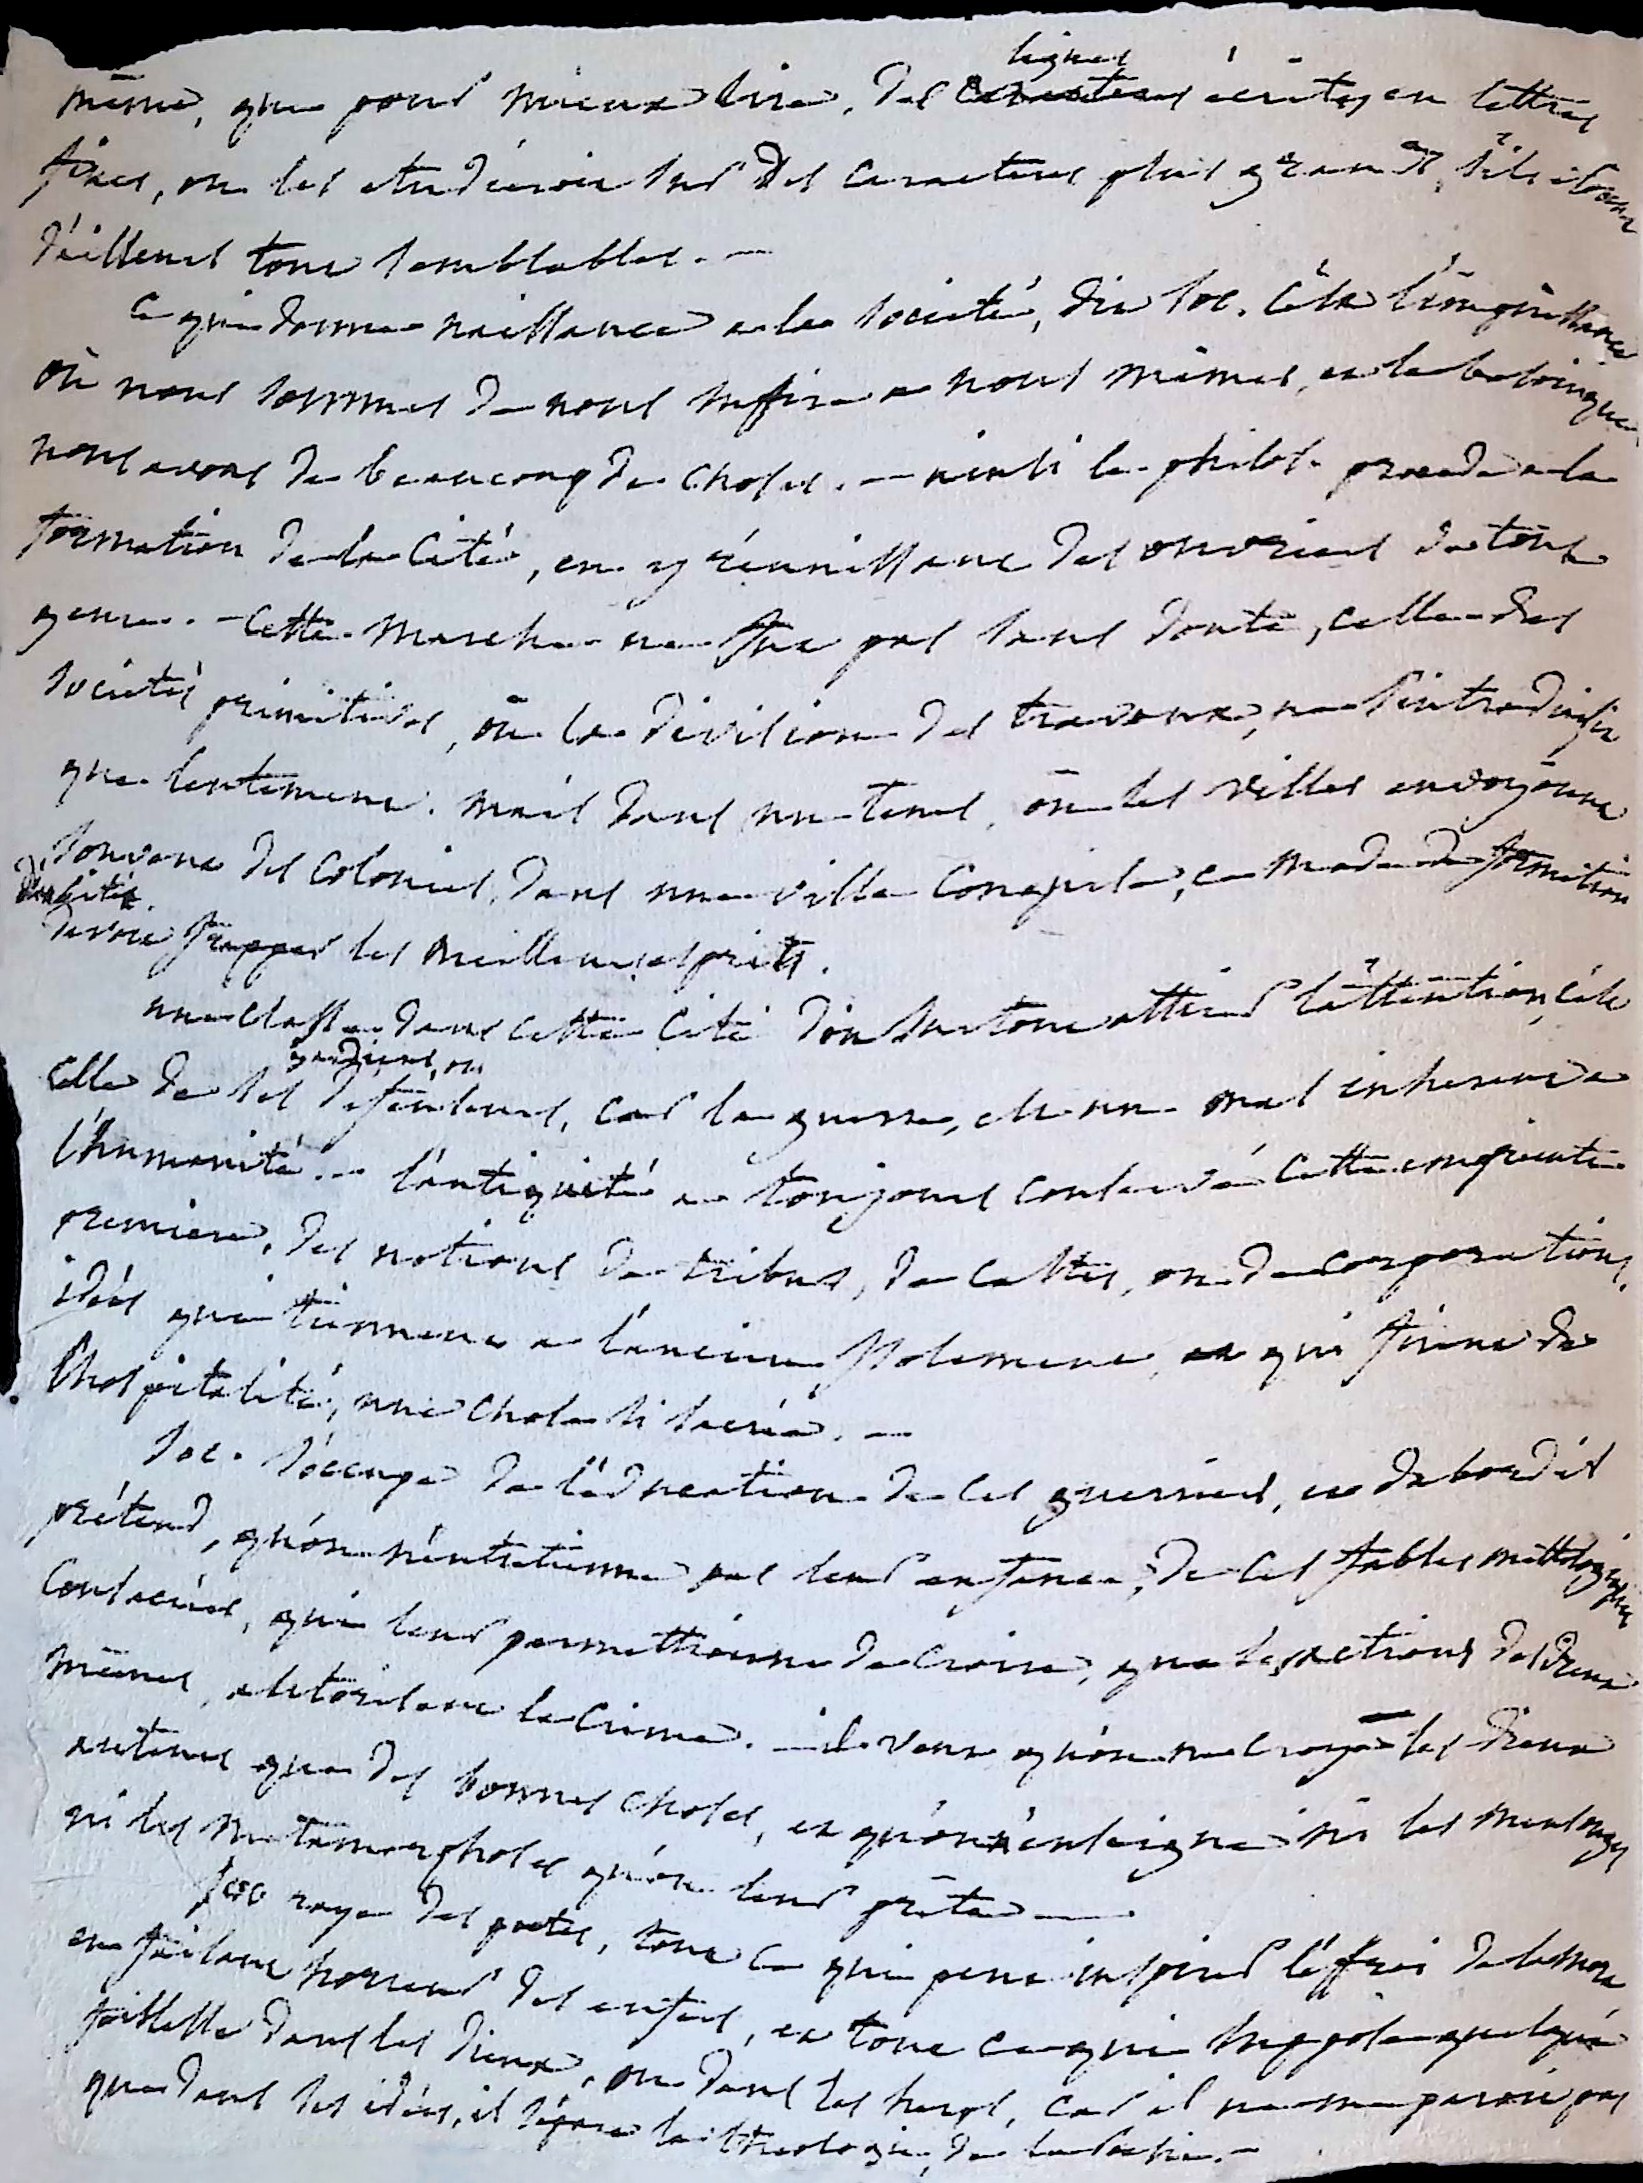 lignes
même, que pour mieux lire, des caracteres écrites en lettres
fines, on les etudieroit sur des caracteres plus grands, s'ils étoient
d'ailleurs tous semblables. —
ce qui donne naissance a la société, dit Soc. c'est l'impuissance
où nous sommes de nous suffire a nous mêmes, et le besoin que
nous avons de beaucoup de choses. — ainsi le philos. procede a la
formation de la cité, en y réunissant des ouvriers de tout
genre. — cette marche ne fut pas sans doute, celle des
sociétés primitives, où la division des travaux, ne s'introduisit
que lentement. mais dans un tems, où les villes envoyoient
souvent des colonies, dans une ville conquise, ce mode de formation
de cité.
devoit frapper les meilleurs esprits.
une classe dans cette cité doit surtout attirer l'attention, c'est
gardiens, ou
celle de ses défenseurs, car la guerre, est un mal inherent a
l'humanité. — l'antiquité a toujours conservé cette empreinte
premiere, des notions de tribus, de castes, ou de corporations,
idées qui tiennent a l'ancien isolement, et qui firent de
l'hospitalité, une chose si sacrée. —
Soc. s'occupe de l'éducation de ces guerriers, et d'abord il
prétend, qu'on n'entretienne pas leur enfance, de ces fables mithologiques
consacrées, qui leur permettroient de croire, que les actions des dieux
mêmes, autorisent le crime. — il veut qu'on ne croye les dieux
auteurs que des bonnes choses, et qu'on n'enseigne ni les mensonges
ni les métamorphoses qu'on leur prête —
Soc raye des poetes, tout ce qui peut inspirer l'effroi de la mort
en faisant horreur des enfers, et tout ce qui suppose quelque
foiblesse dans les dieux, ou dans les heros, car il ne me paroit pas
que dans ses idées, il sépare la théologie, de la poésie. —